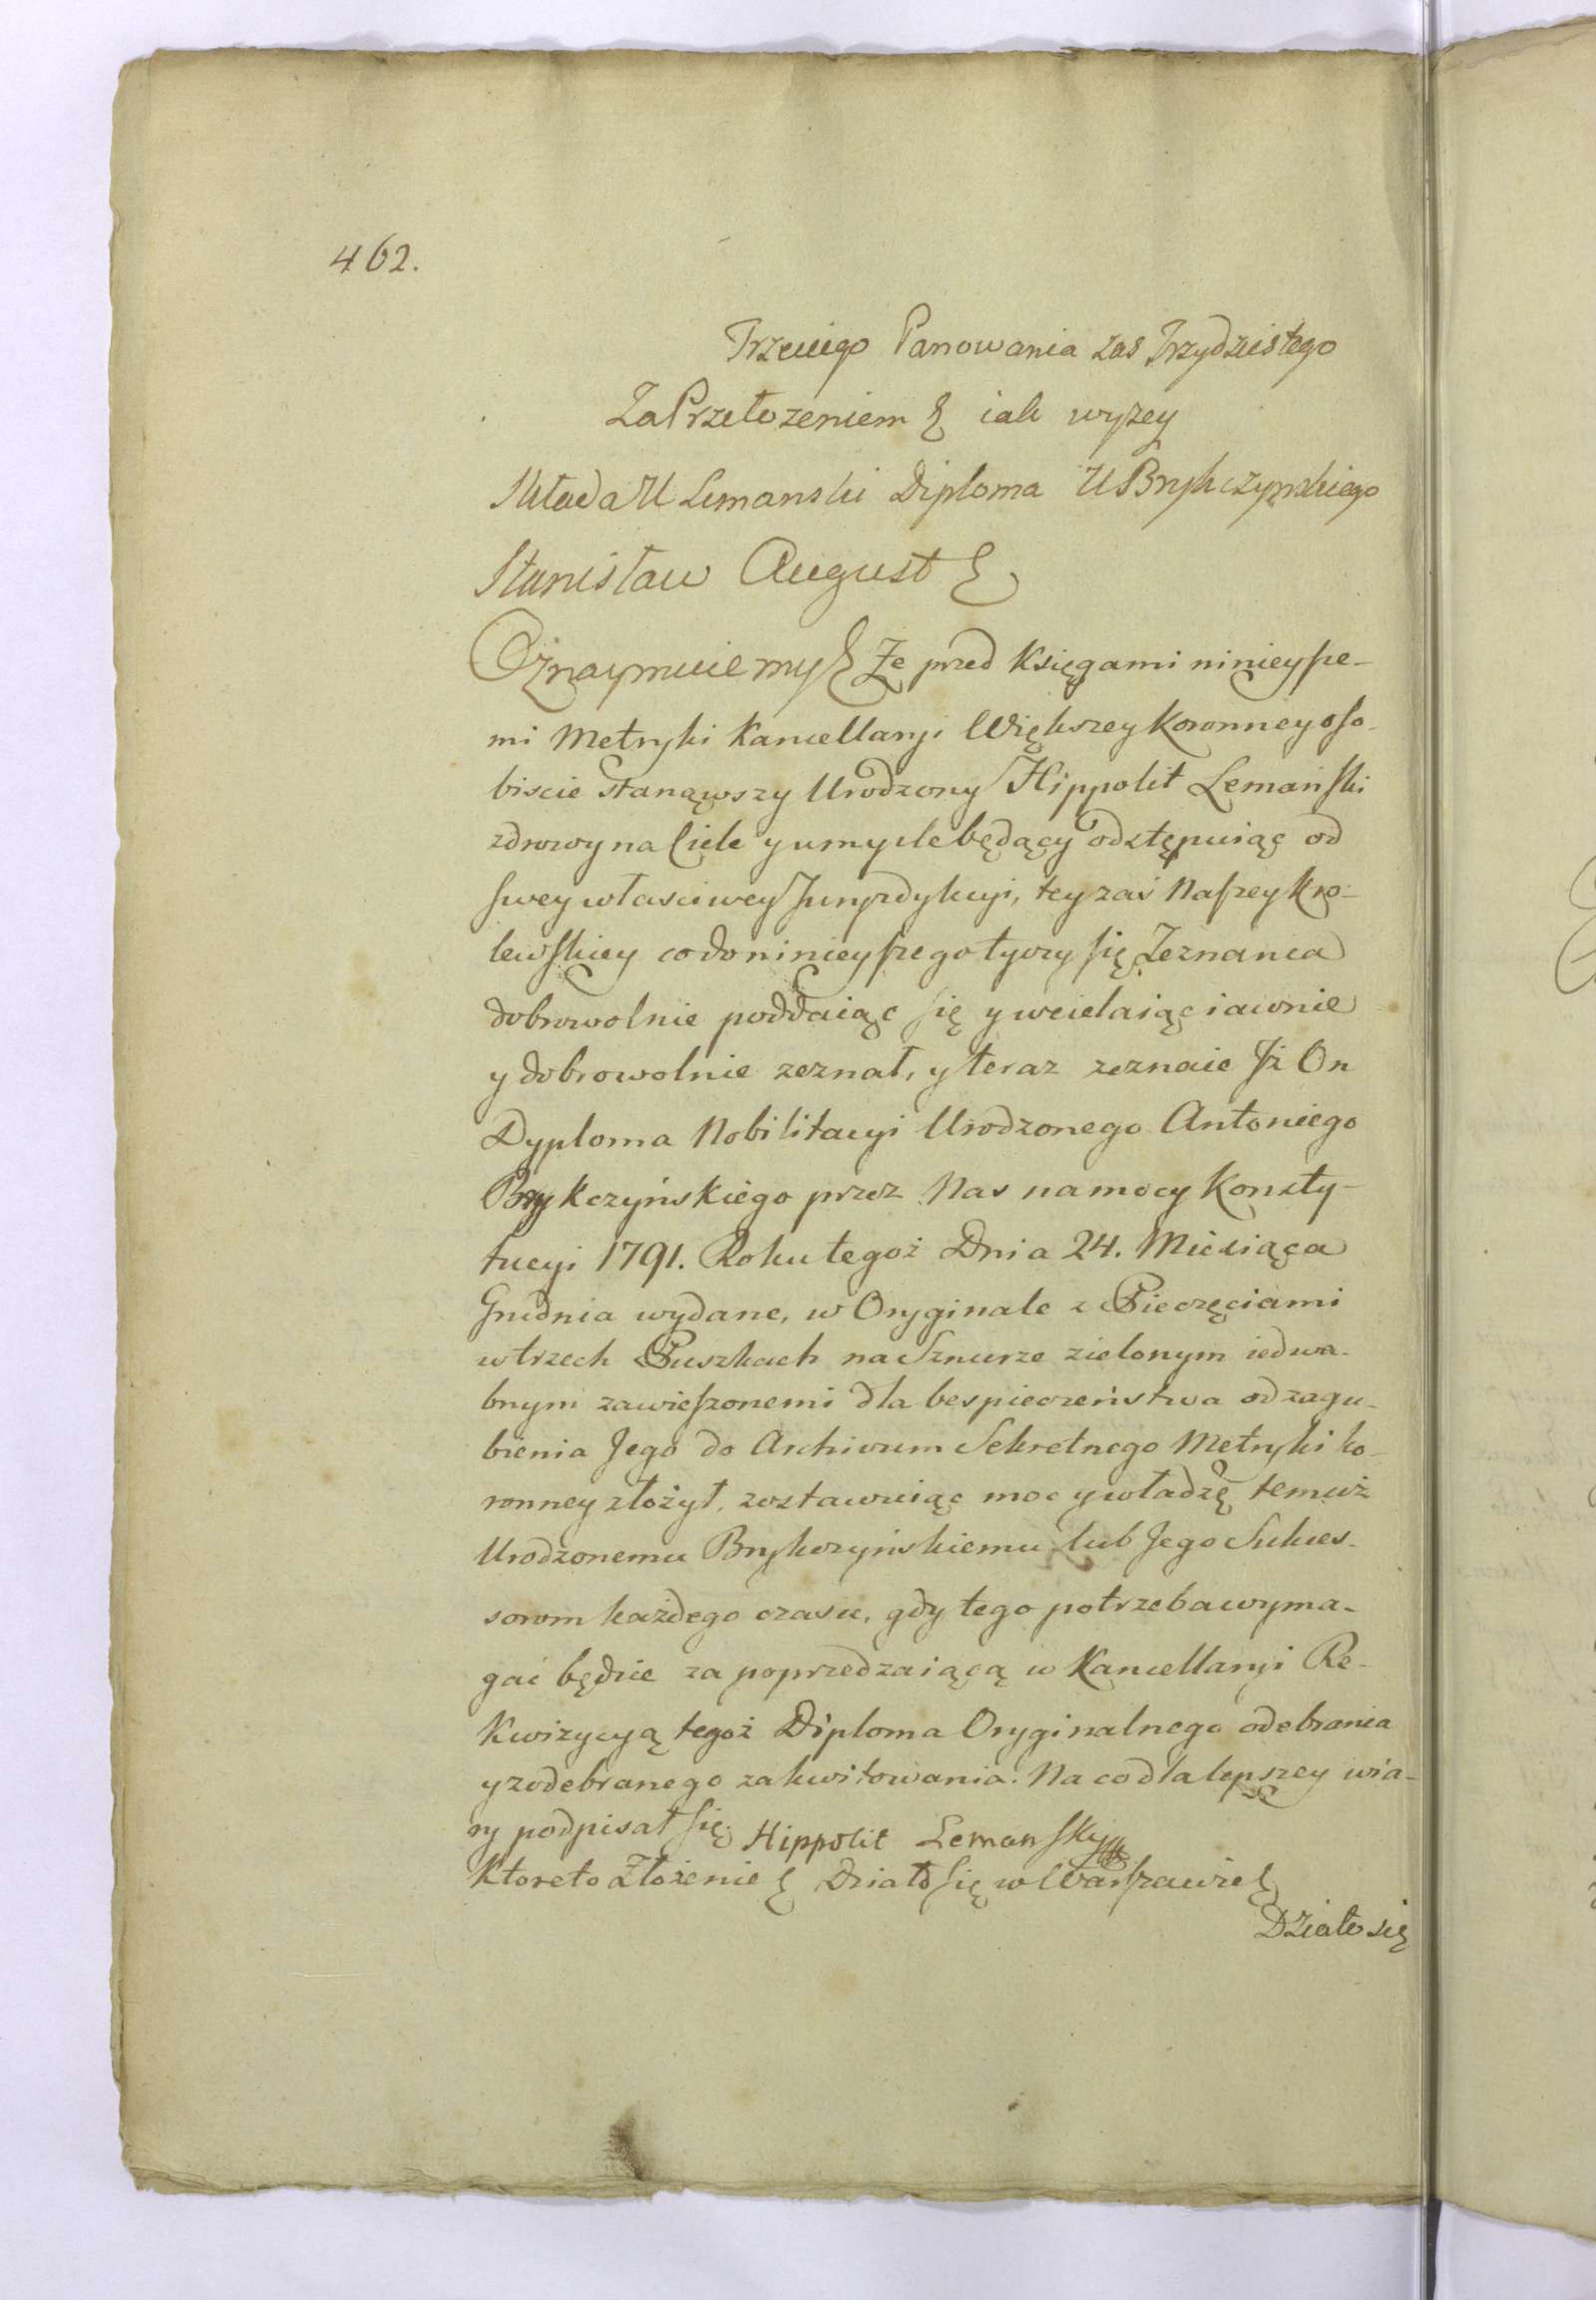 462.
Trzeciego Panowania zas Trzydziestego
Za Przełozeniem & iak wyzey
Składa U Lemanski Diploma U Brykczynskiego
Stanisław August &
Oznaymuiemy & Że przed Księgami ninieysze-
mi Metryki Kancellaryi Większey Koronney oso-
biscie stanąwszy Urodzony Hippolit Lemański
zdrowy na Ciele y umysle będący odstępuiąc od
swey własciwey Juryzdykcyi, tey zaś Naszey Kro-
lewskiey co do ninieyszego tyczy się Zeznania
dobrowolnie poddaiąc się y wcielaiąc iawnie
y dobrowolnie zeznał, y teraz zeznaie Jż On
Dyploma Nobilitacyi Urodzonego Antoniego
Brykczyńskiego przez Nas na mocy Konsty-
tucyi 1791. Roku tegoż Dnia 24. Miesiąca
Grudnia wydane, w Oryginale z Pieczęciami
w trzech Puszkach na Sznurze zielonym iedwa-
bnym zawieszonemi dla bespieczeństwa od zagu-
bienia Jego do Archiwum Sekretnego Metryki ko-
ronney złożył, zostawuiąc moc y władzę temuż
Urodzonemu Brykczyńskiemu lub Jego Sukces-
sorom każdego czasu, gdy tego potrzeba wyma-
gać będzie za poprzedzaiącą w Kancellaryi Re-
kwizycyą tegoż Diploma Oryginalnego odebrania
y z odebranego zakwitowania. Na co dla lepszey wia-
ry podpisał się. Hippolit Lemansky
Ktoreto Złożenie & Działo się w Warszawie &
Działo się